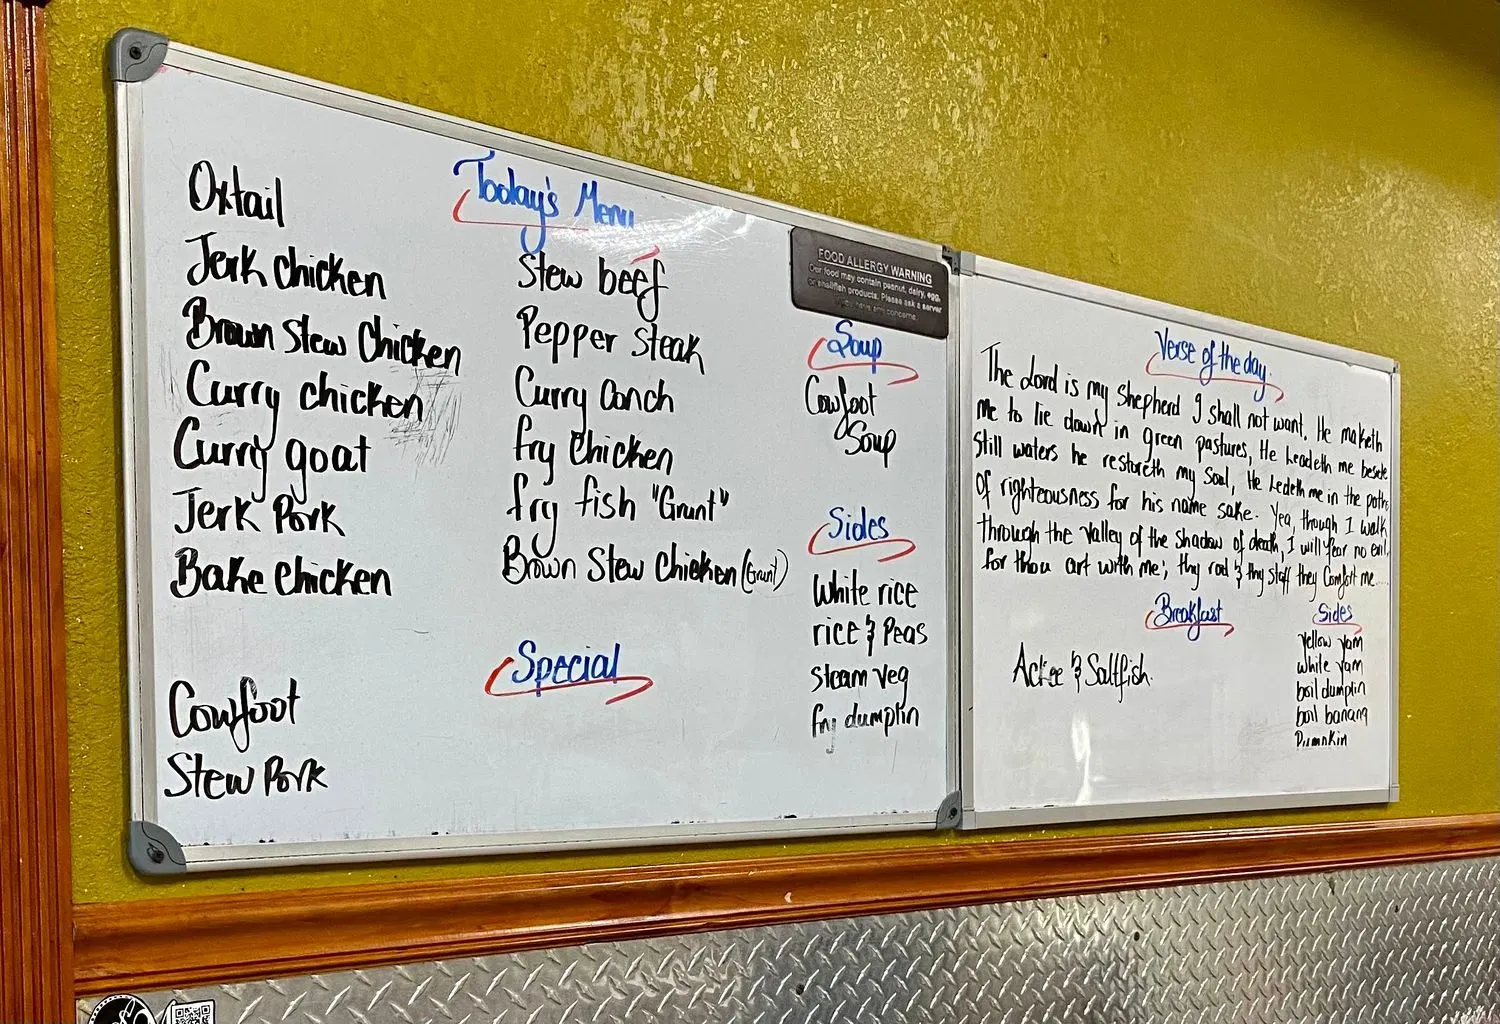 Today's Menu
Oxtail
Jerk chicken
Brown Stew Chicken
Curry chicken
Curry goat
Jerk Pork
Bake chicken
Stew beef
Pepper steak
Curry Conch
fry chicken
fry fish "Grunt"
Brown Stew Chicken (Grunt)
Special
Cowfoot
Stew Pork
FOOD ALLERGY WARNING
Our food may contain peanut, dairy, egg,
or shellfish products. Please ask a server
if you have any concerns.
Soup
Cowfoot
Soup
Sides
White rice
rice & Peas
steam veg
fry dumplin
Verse of the day.
The Lord is my Shepherd I shall not want. He maketh
me to lie down in green pastures, He Leadeth me beside
Still waters he restoreth my Soul, He Ledeth me in the paths
of righteousness for his name sake. Yea, though I walk
through the valley of the shadow of death, I will fear no evil,
for thou art with me; thy rod & thy staff they Comfort me.....
Breakfast
Ackee & Saltfish.
Sides
yellow yam
white yam
boil dumplin
boil banana
Pumpkin